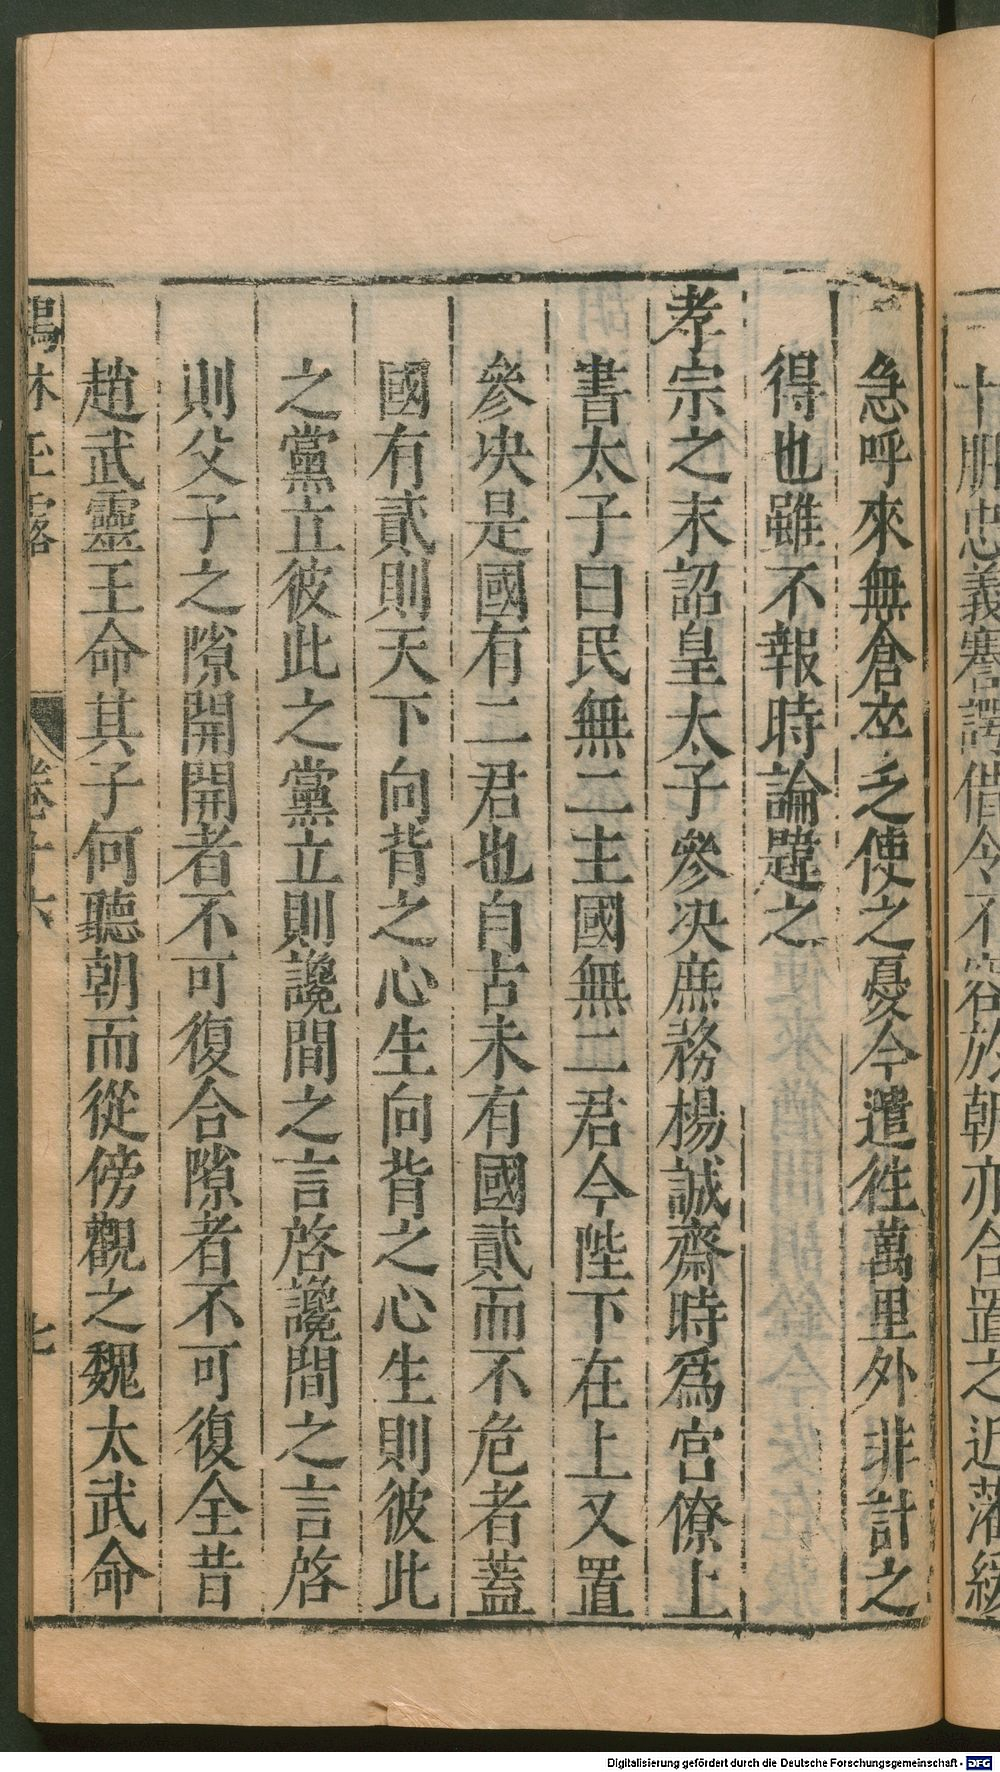 十朋忠義蹇諤借令不容於朝亦合置之近藩緩
急呼來無倉卒乏使之憂今遣徃萬里外非計之
得也雖不報時論韙之
孝宗之末詔皇太子參决庶務楊誠齋時爲宫僚上
書太子曰民無二主國無二君今陛下在上又置
參决是國有二君也自古未有國貳而不危者蓋
國有貳則天下向背之心生向背之心生則彼此
之黨立彼此之黨立則讒間之言啓讒間之言啓
則父子之隙開開者不可復合隙者不可復全昔
趙武靈王命其子何聽朝而從傍觀之魏太武命
鶴林玉露 卷十六 七
Digitalisierung gefördert durch die Deutsche Forschungsgemeinschaft - DFG